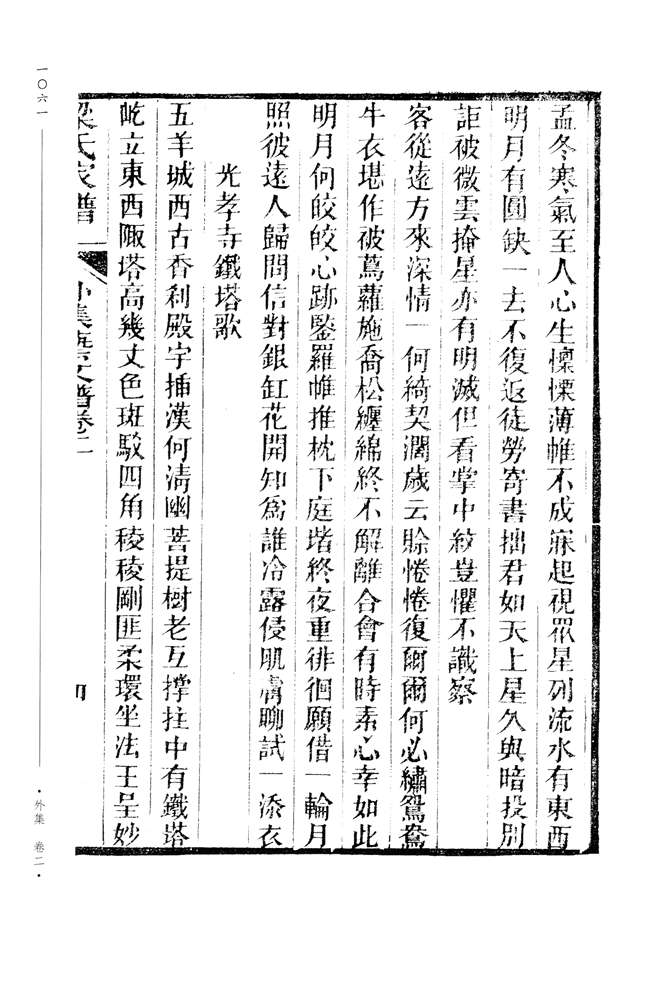 孟冬寒氣至人心生懍慄薄帷不成寐起視眾星列流水有東西
明月有圓缺一去不復返徒勞寄書拙君如天上星久與暗投別
詎被微雲掩星亦有明滅但看掌中紋豈懼不識察
客從遠方來深情一何綺契濶歲云賒惓惓復爾爾何必繡鴛鴦
牛衣堪作被蔦蘿施喬松纏綿終不解離合會有時素心幸如此
明月何皎皎心跡鑒羅帷推枕下庭堦終夜重徘徊願借一輪月
照彼遠人歸問信對銀缸花開知爲誰冷露侵肌膚聊試一添衣
光孝寺鐵塔歌
五羊城西古香刹殿宇插漢何淸幽菩提樹老互撐拄中有鐵塔
屹立東西陬塔高幾丈色斑駁四角稜稜剛匪柔環坐法王呈妙
梁氏家譜 外集 卷二
四
一〇六一
·外集 卷二·